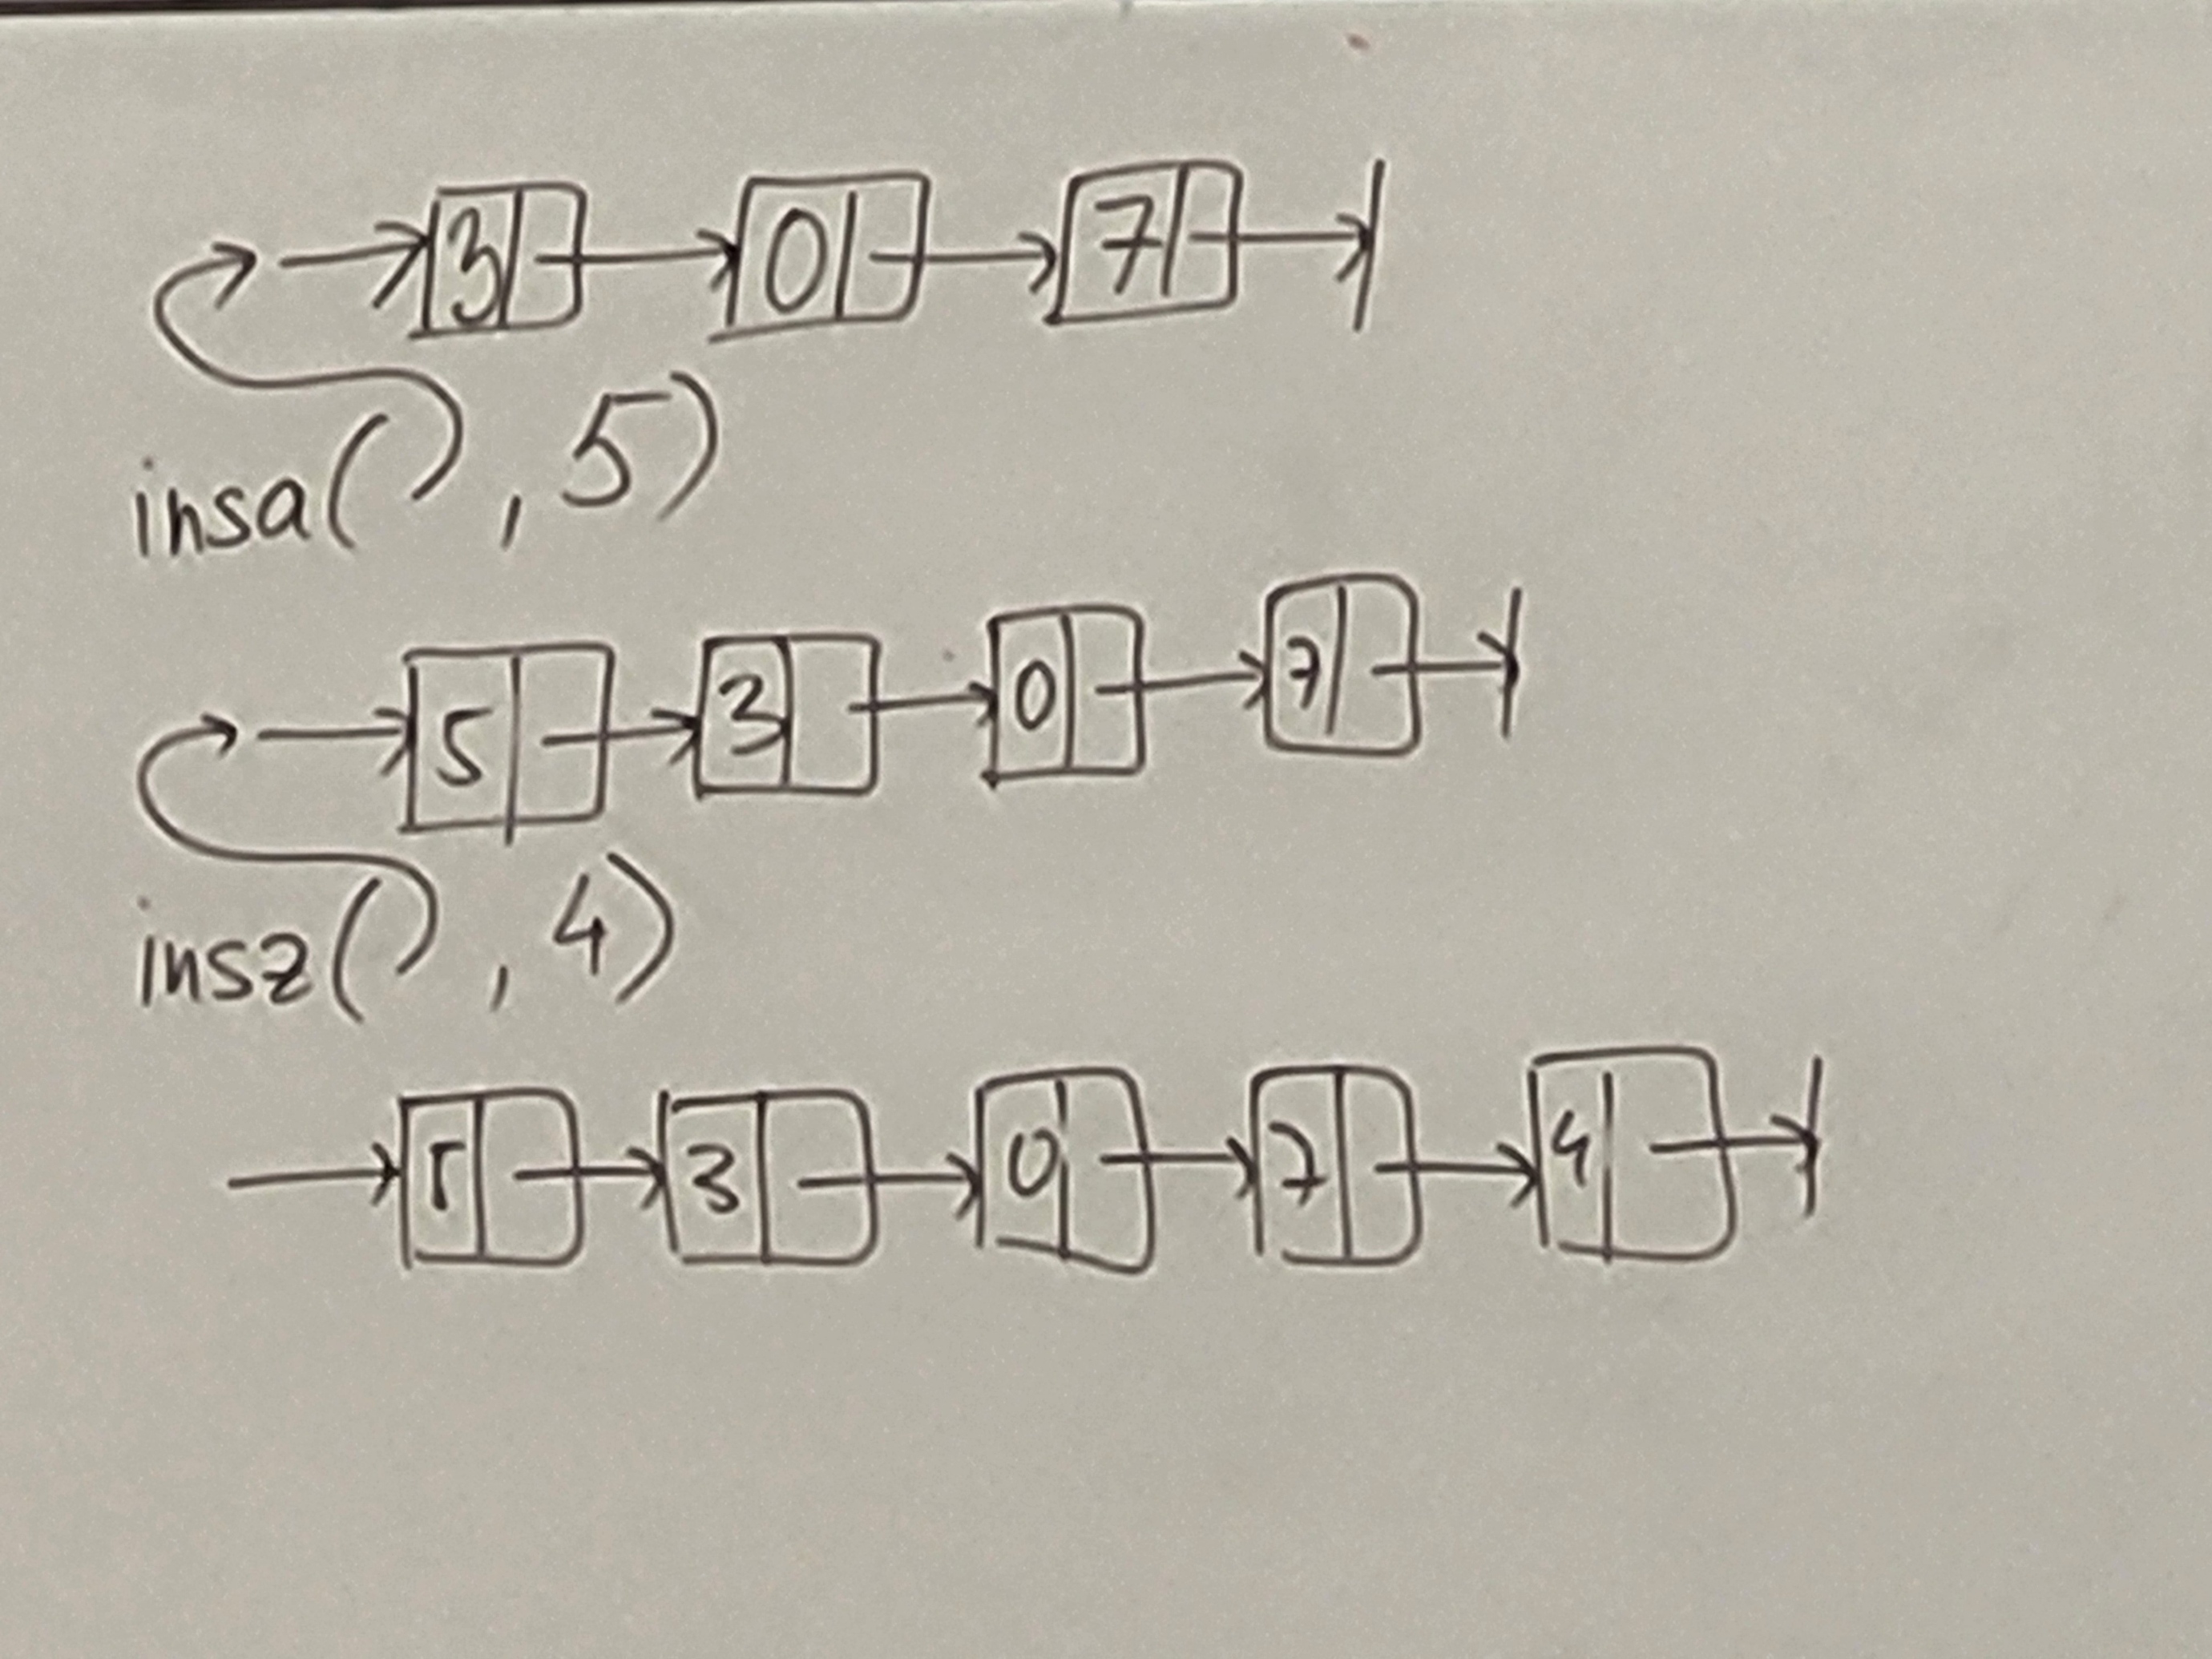 3 0 7
insa( , 5)
5 3 0 7
insz( , 4)
5 3 0 7 4